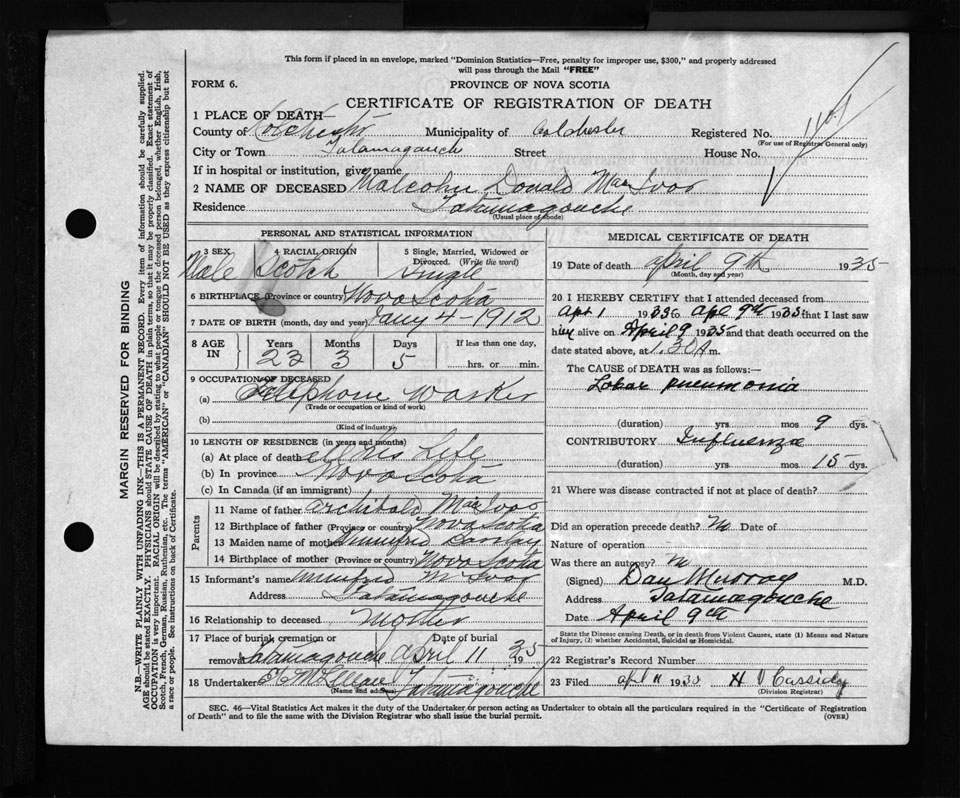 This form if placed in an envelope, marked "Dominion Statistics—Free, penalty for improper use, $300," and properly addressed
will pass through the Mail "FREE"
FORM 6.
PROVINCE OF NOVA SCOTIA
CERTIFICATE OF REGISTRATION OF DEATH
1 PLACE OF DEATH
County of Colchester Municipality of Colchester Registered No.
(For use of Registrar General only)
City or Town Tatamagouche Street House No.
If in hospital or institution, give name
2 NAME OF DECEASED Malcolm Donald MacIvor
Residence Tatamagouche
(Usual place of abode)
PERSONAL AND STATISTICAL INFORMATION
3 SEX 4 RACIAL ORIGIN 5 Single, Married, Widowed or
Divorced. (Write the word)
Male Scotch Single
6 BIRTHPLACE (Province or country) Nova Scotia
7 DATE OF BIRTH (month, day and year) Jany 4-1912
8 AGE IN Years Months Days If less than one day,
23 3 5 hrs. or min.
9 OCCUPATION OF DECEASED
(a) Telephone Worker
(Trade or occupation or kind of work)
(b)
(Kind of industry)
10 LENGTH OF RESIDENCE (in years and months)
(a) At place of death Life
(b) In province Nova Scotia
(c) In Canada (if an immigrant)
Parents
11 Name of father Archibald MacIvor
12 Birthplace of father (Province or country) Nova Scotia
13 Maiden name of mother Winnifred
14 Birthplace of mother (Province or country) Nova Scotia
15 Informant's name Winnifred McIvor
Address Tatamagouche
16 Relationship to deceased Mother
17 Place of burial, cremation or Date of burial
removal Tatamagouche April 11 1935
18 Undertaker Tatamagouche
(Name and address)
MEDICAL CERTIFICATE OF DEATH
19 Date of death April 9th 1935
(Month, day and year)
20 I HEREBY CERTIFY that I attended deceased from
Apr 1 1935 to Apl 9th 1935 that I last saw
him alive on April 9 1935 and that death occurred on
date stated above, at 1.30 A m.
The CAUSE of DEATH was as follows:—
Lobar pneumonia
(duration) yrs mos 9 dys.
CONTRIBUTORY Influenza
(duration) yrs mos 15 dys.
21 Where was disease contracted if not at place of death?
Did an operation precede death? Date of
Nature of operation
Was there an autopsy?
(Signed) Dan Murray M.D.
Address Tatamagouche
Date April 9th
State the Disease causing Death, or in death from Violent Causes, state (1) Means and Nature
of Injury, (2) whether Accidental, Suicidal or Homicidal.
22 Registrar's Record Number
23 Filed Apl 11 1935 H Cassidy
(Division Registrar)
SEC. 46—Vital Statistics Act makes it the duty of the Undertaker or person acting as Undertaker to obtain all the particulars required in the "Certificate of Registration
of Death" and to file the same with the Division Registrar who shall issue the burial permit.
(OVER)
MARGIN RESERVED FOR BINDING
N.B.—WRITE PLAINLY WITH UNFADING INK—THIS IS A PERMANENT RECORD. Every item of information should be carefully supplied.
AGE should be stated EXACTLY. PHYSICIANS should STATE CAUSE OF DEATH in plain terms, so that it may be properly classified. Exact statement of
OCCUPATION is very important. RACIAL ORIGIN will be described by stating to what people or tongue the deceased person belonged, whether English, Irish,
Scotch, French, German, Russian, Ruthenian, etc. The terms "AMERICAN" or "CANADIAN" SHOULD NOT BE USED as they express citizenship but not
a race or people. See instructions on back of Certificate.